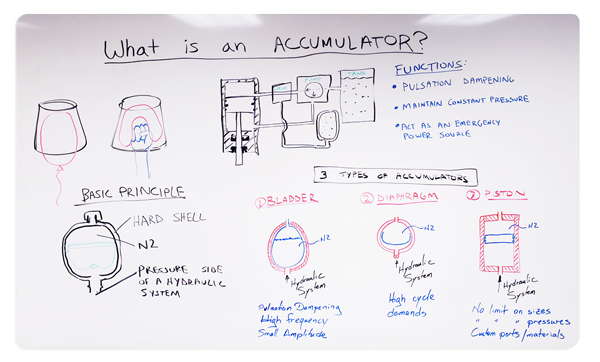 What is an ACCUMULATOR?
FUNCTIONS:
• PULSATION DAMPENING
• MAINTAIN CONSTANT PRESSURE
• ACT AS AN EMERGENCY
POWER SOURCE
TANK
BASIC PRINCIPLE
HARD SHELL
N2
PRESSURE SIDE
OF A HYDRAULIC
SYSTEM
3 TYPES OF ACCUMULATORS
① BLADDER
N2
Hydraulic
System
Pulsation Dampening
High frequency
Small Amplitude
② DIAPHRAGM
N2
Hydraulic
System
High cycle
demands
PISTON
N2
Hydraulic
System
No limit on sizes
" " " pressures
Custom ports/materials